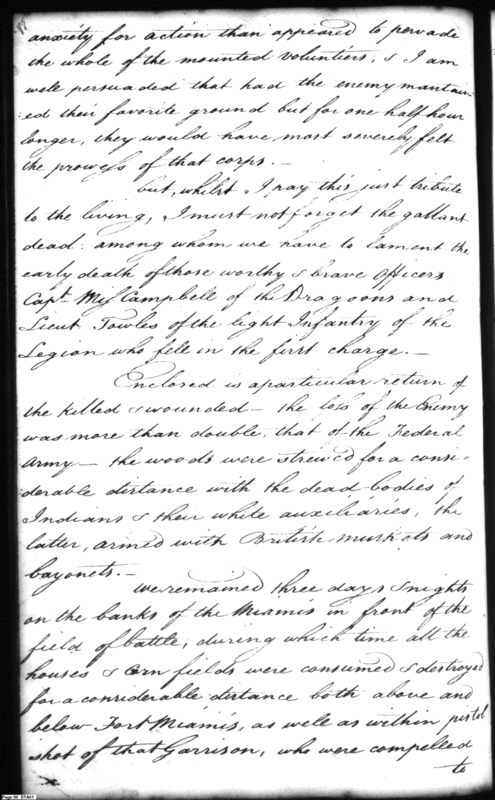 anxiety for action than appeared to pervade
the whole of the mounted volunteers; & I am
well persuaded that had the enemy mantain
:ed their favorite ground but for one half hour
longer, they would have most severely felt
the prowess of that corps.—
but, whilst I pay this just tribute
to the living, I must not forget the gallant
dead: among whom we have to lament the
early death of those worthy & brave Officers
Capt. Mis Campbell of the Dragoons and
Lieut Towles of the light Infantry of the
Legion who fell in the first charge.—
Enclosed is a particular return of
the killed & wounded — the loss of the Enemy
was more than double, that of the Federal
Army — the woods were strewed for a consi-
derable distance with the dead bodies of
Indians & their white auxiliaries, the
latter, armed with British muskets and
bayonets.—
we remained three days & nights
on the banks of the Miamis in front of the
field of battle, during which time all the
houses & Corn fields were consumed & destroyed
for a considerable distance both above and
below Fort Miamis, as well as within pistol
shot of that Garrison, who were compelled
to